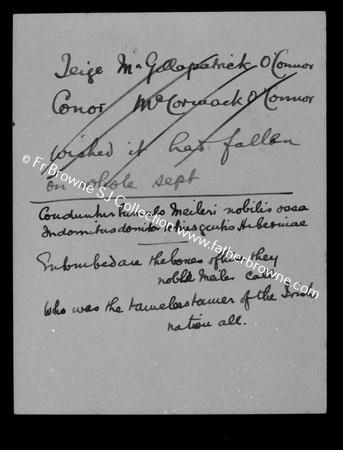 Teige McGillapatrick O'Connor
Conor McCormack O'Connor
wished it had fallen
on whole sept
Conduntur tumulo Meileri nobilis ossa
Indomitus domitor totius gentis Hiberniae
Entombed are the bones of him they
noble Meiler call
Who was the tameless tamer of the Irish
nation all.
© Fr Browne SJ Collection
www.fatherbrowne.com